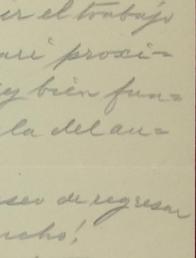 ir el trabajo
ari proxi=
ey bién fun=
la del au=
seo de regresar
ucho!